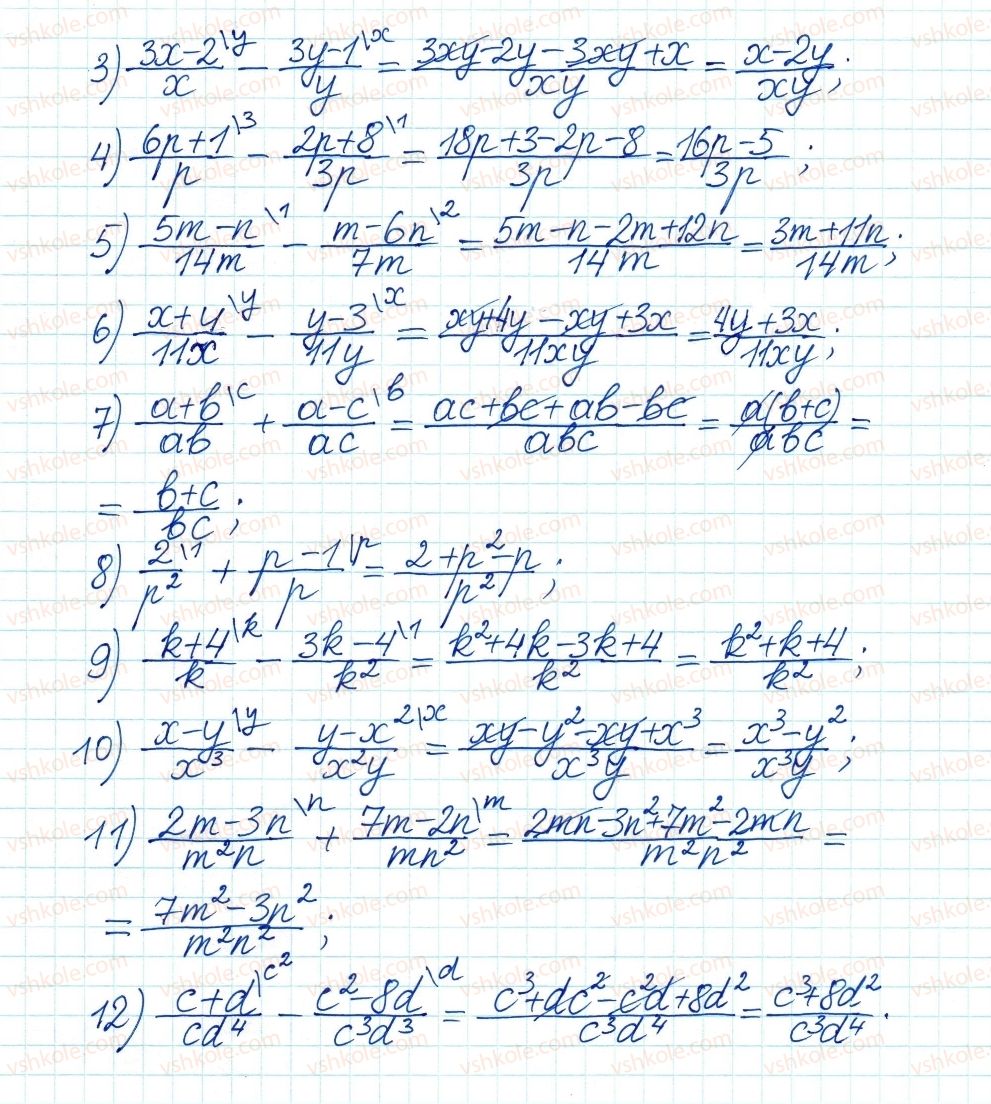 3) (3x-2\y)/x - (3y-1\x)/y = (3xy-2y-3xy+x)/xy = (x-2y)/xy;
4) (6p+1\3)/p - (2p+8\1)/3p = (18p+3-2p-8)/3p = (16p-5)/3p;
5) (5m-n\1)/14m - (m-6n\2)/7m = (5m-n-2m+12n)/14m = (3m+11n)/14m;
6) (x+y\y)/11x - (y-3\x)/11y = (xy+4y-xy+3x)/11xy = (4y+3x)/11xy;
7) (a+b\c)/ab + (a-c\b)/ac = (ac+bc+ab-bc)/abc = a(b+c)/abc =
= (b+c)/bc;
8) (2\1)/p² + (p-1\p)/p = (2+p²-p)/p²;
9) (k+4\k)/k - (3k-4\1)/k² = (k²+4k-3k+4)/k² = (k²+k+4)/k²;
10) (x-y\y)/x³ - (y-x²\x)/x²y = (xy-y²-xy+x³)/x³y = (x³-y²)/x³y;
11) (2m-3n\n)/m²n + (7m-2n\m)/mn² = (2mn-3n²+7m²-2mn)/m²n² =
= (7m²-3n²)/m²n²;
12) (c+d\c²)/cd⁴ - (c²-8d\d)/c³d³ = (c³+dc²-c²d+8d²)/c³d⁴ = (c³+8d²)/c³d⁴.
vshkole.com